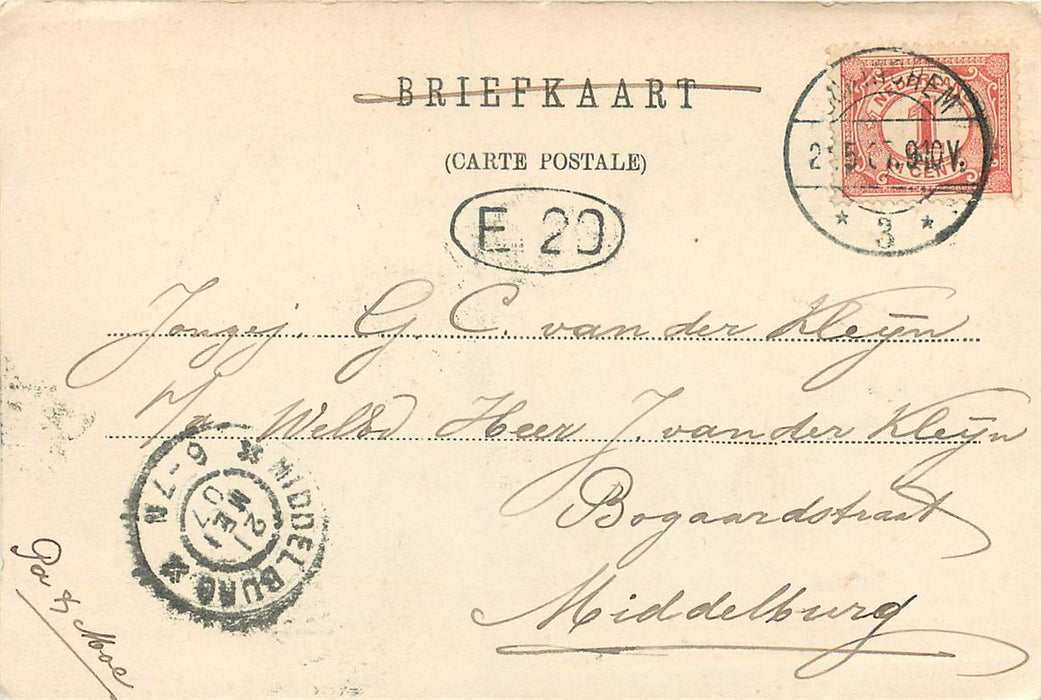 BRIEFKAART
(CARTE POSTALE)
E 20
NEDERLAND
1
CENT
5 9-10V.
3
Jongej. G. C. van der Kleÿn
p/a WelEd Heer J. van der Kleÿn
Bogaardstraat
Middelburg
MIDDELBURG
6-7N
21
MEI
07
Pa & Moe